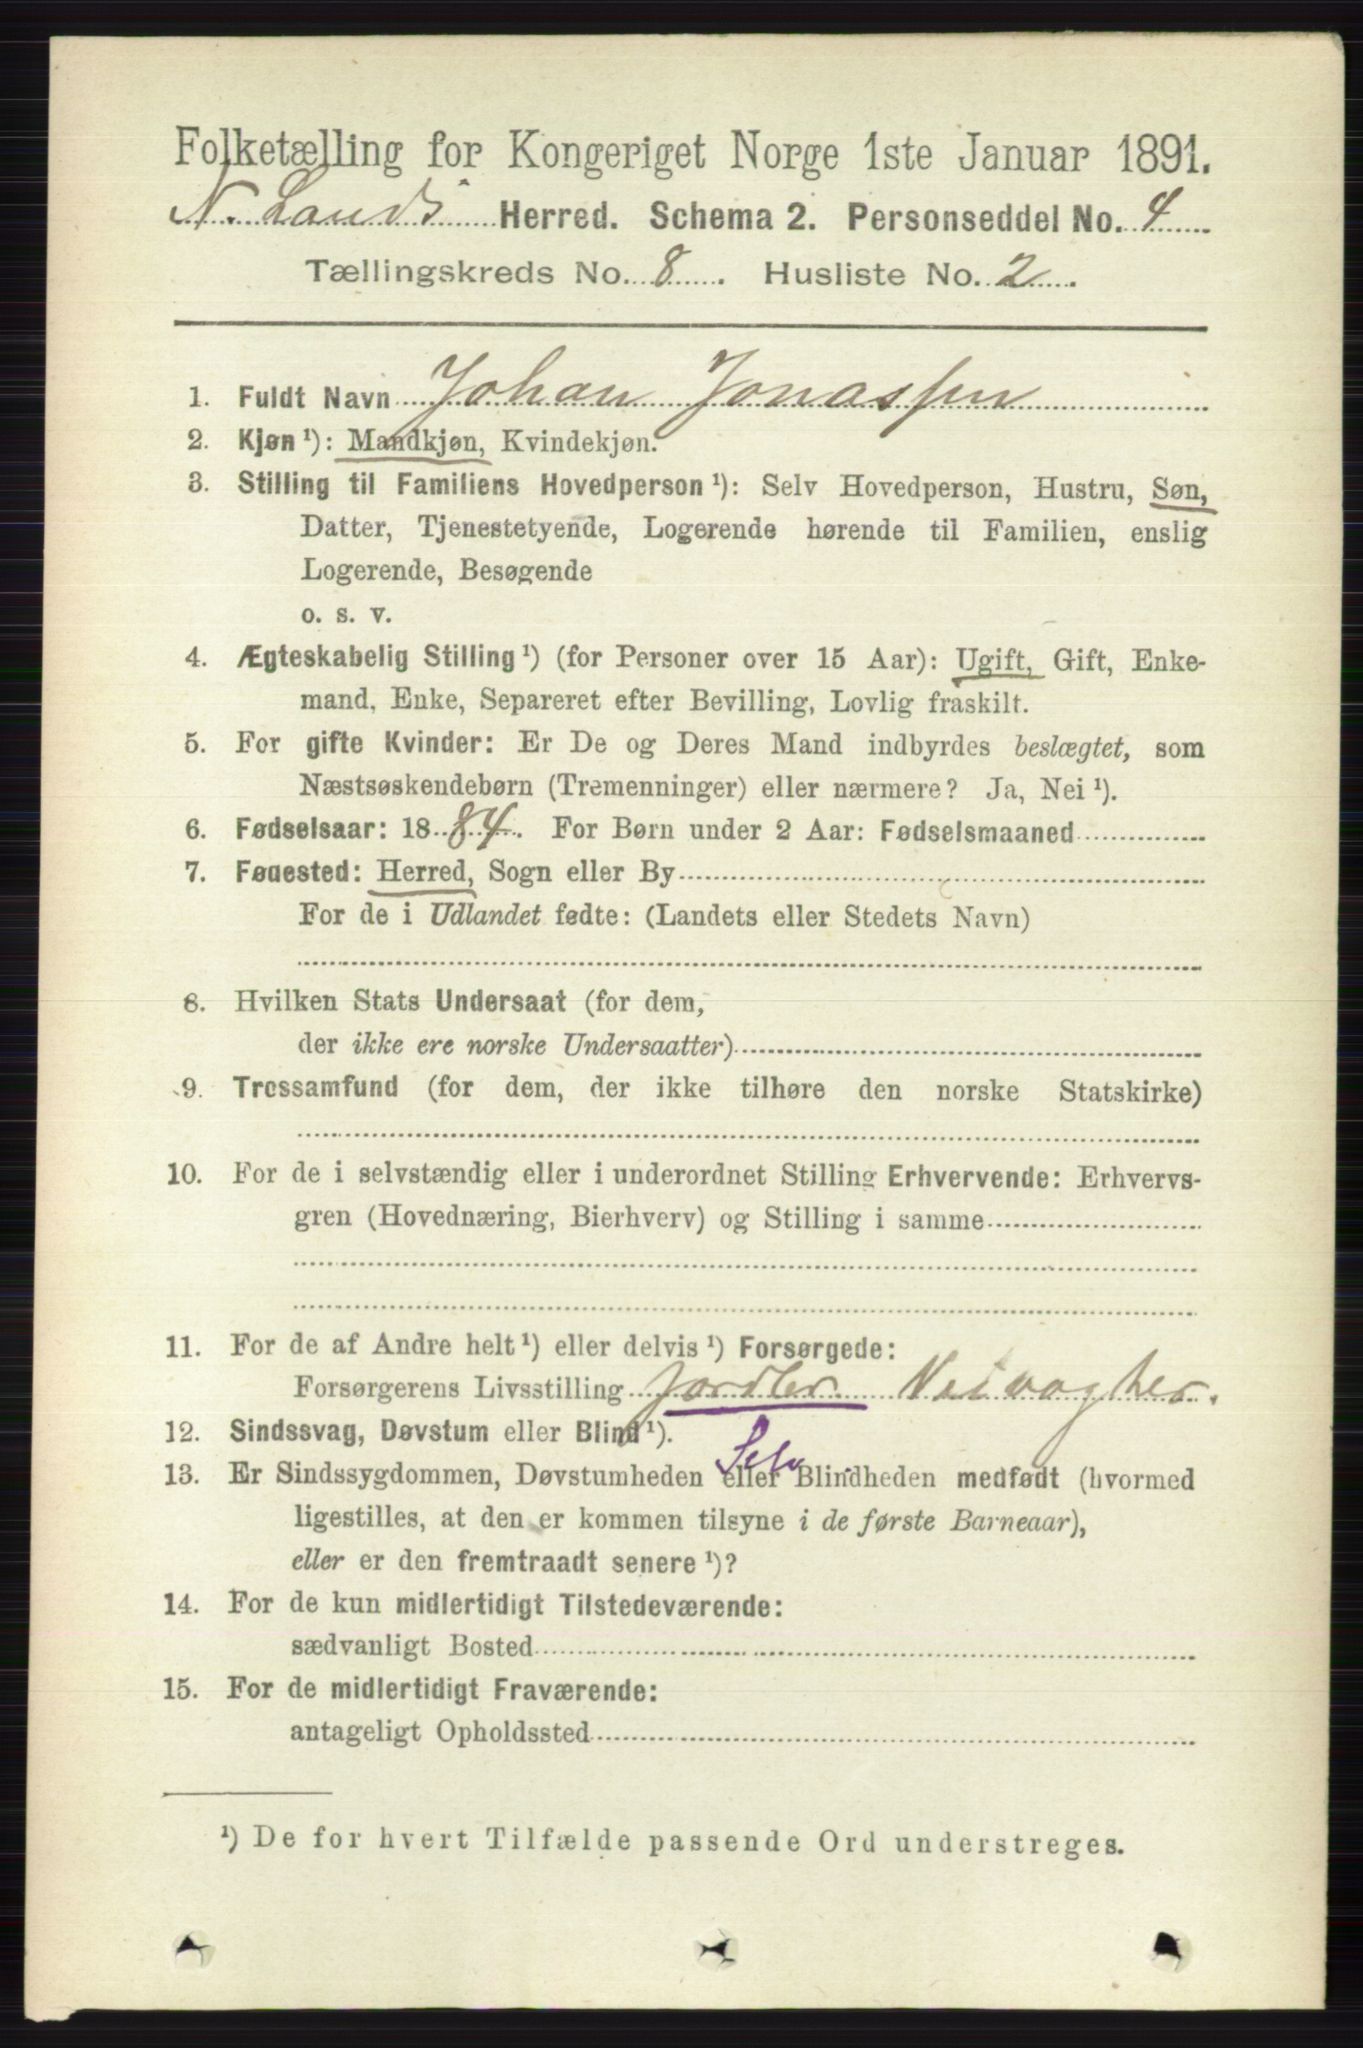 Folketælling for Kongeriget Norge 1ste Januar 1891.
N. Lands Herred. Schema 2. Personseddel No. 4
Tællingskreds No. 8. Husliste No. 2.
1. Fuldt Navn Johan Jonassen
2. Kjøn ¹): Mandkjøn, Kvindekjøn.
3. Stilling til Familiens Hovedperson ¹): Selv Hovedperson, Hustru, Søn,
Datter, Tjenestetyende, Logerende hørende til Familien, enslig
Logerende, Besøgende
o. s. v.
4. Ægteskabelig Stilling ¹) (for Personer over 15 Aar): Ugift, Gift, Enke-
mand, Enke, Separeret efter Bevilling, Lovlig fraskilt.
5. For gifte Kvinder: Er De og Deres Mand indbyrdes beslægtet, som
Næstsøskendebørn (Tremenninger) eller nærmere? Ja, Nei ¹).
6. Fødselsaar: 1884. For Børn under 2 Aar: Fødselsmaaned
7. Fødested: Herred, Sogn eller By
For de i Udlandet fødte: (Landets eller Stedets Navn)
8. Hvilken Stats Undersaat (for dem,
der ikke ere norske Undersaatter)
9. Trossamfund (for dem, der ikke tilhøre den norske Statskirke)
10. For de i selvstændig eller i underordnet Stilling Erhvervende: Erhvervs-
gren (Hovednæring, Bierhverv) og Stilling i samme
11. For de af Andre helt ¹) eller delvis ¹) Forsørgede:
Forsørgerens Livsstilling Jordbr. Veivogter.
12. Sindssvag, Døvstum eller Blind ¹).
Selv
13. Er Sindssygdommen, Døvstumheden eller Blindheden medfødt (hvormed
ligestilles, at den er kommen tilsyne i de første Barneaar),
eller er den fremtraadt senere ¹)?
14. For de kun midlertidigt Tilstedeværende:
sædvanligt Bosted
15. For de midlertidigt Fraværende:
antageligt Opholdssted
¹) De for hvert Tilfælde passende Ord understreges.